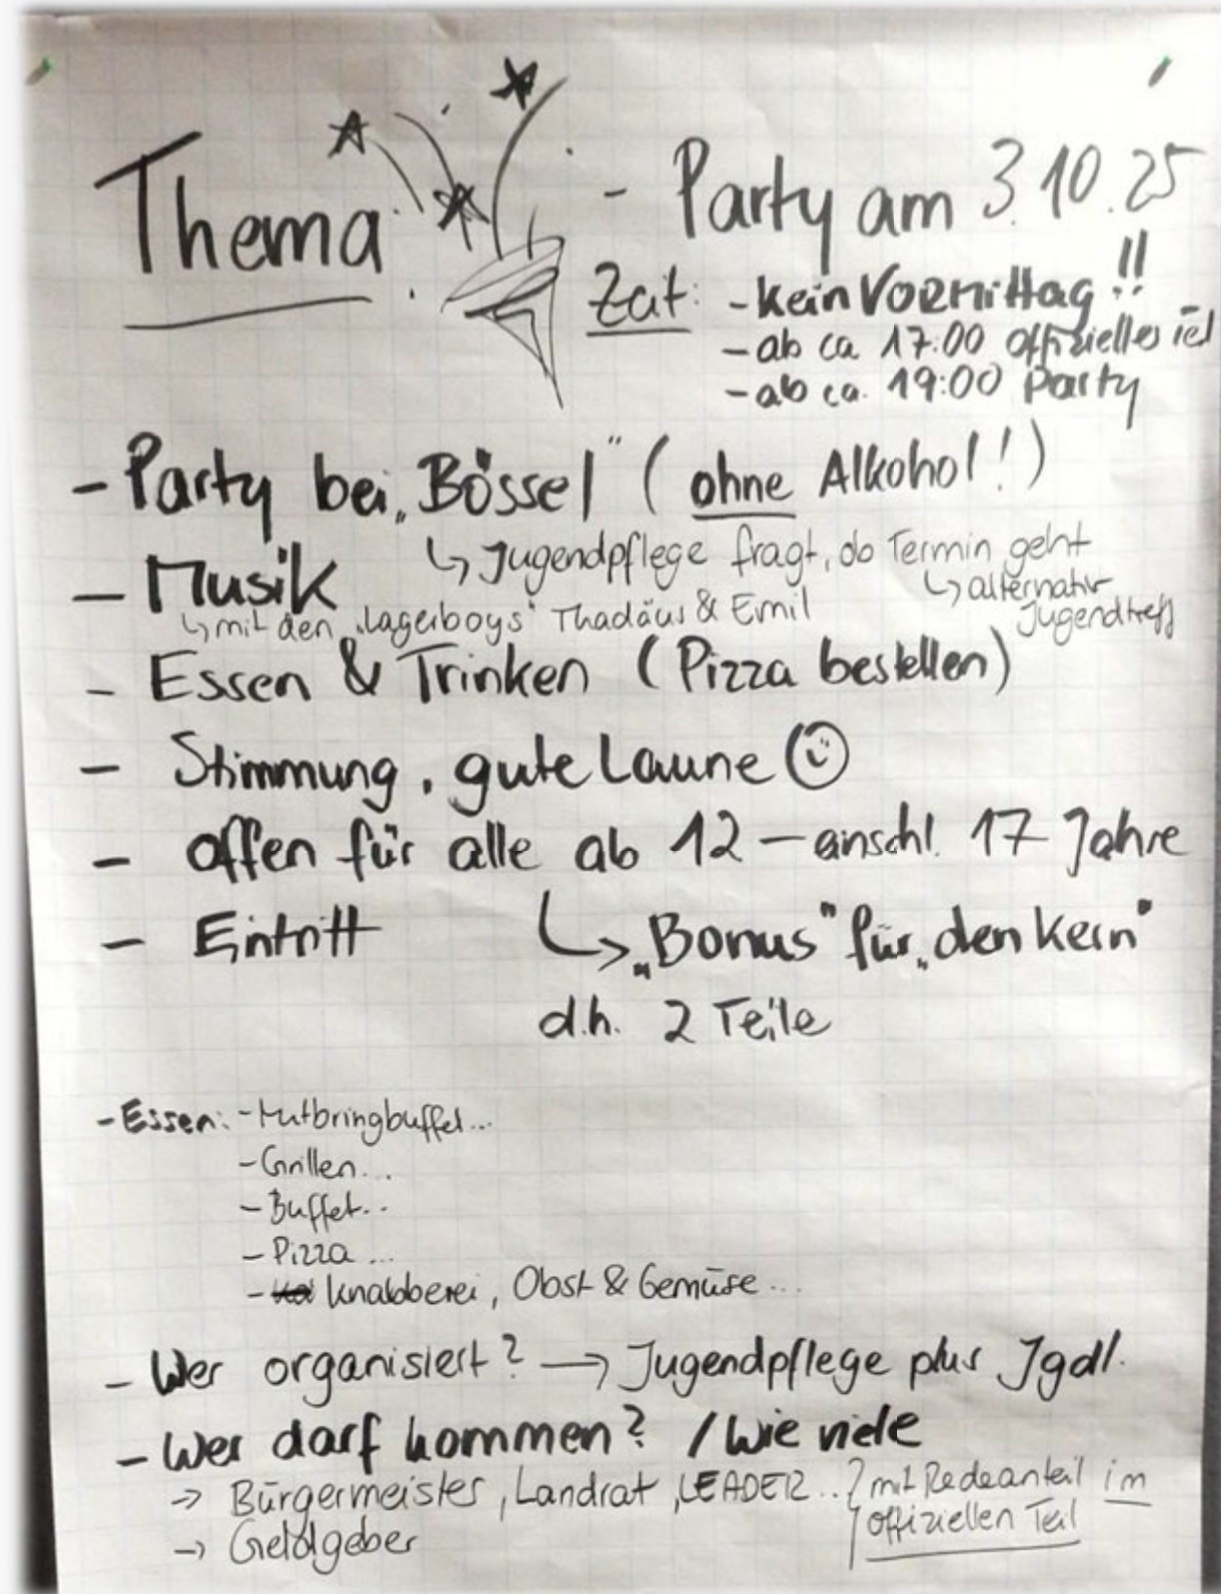 Thema: - Party am 3.10.25
Zeit: - kein Vormittag!!
- ab ca 17:00 offizielles
- ab ca. 19:00 Party
- Party bei „Bössel" (ohne Alkohol!)
↳ Jugendpflege fragt, ob Termin geht
↳ alternativ Jugendtreff
- Musik
↳ mit den „Lagerboys" Thadäus & Emil
- Essen & Trinken (Pizza bestellen)
- Stimmung, gute Laune ☺
- offen für alle ab 12 - anschl. 17 Jahre
↳ „Bonus" für „den Kern"
d.h. 2 Teile
- Eintritt
- Essen: - Mitbringbuffet...
- Grillen...
- Buffet...
- Pizza...
- Knabberei, Obst & Gemüse...
- Wer organisiert? → Jugendpflege plus Jgdl.
- Wer darf kommen? / Wie viele
→ Bürgermeister, Landrat, LEADER...
→ Geldgeber
mit Redeanteil im
offiziellen Teil